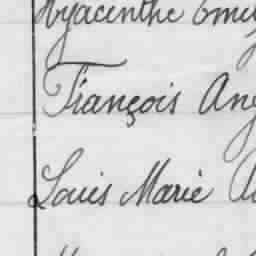 Hyacinthe Emi
François Ang
Louis Marie